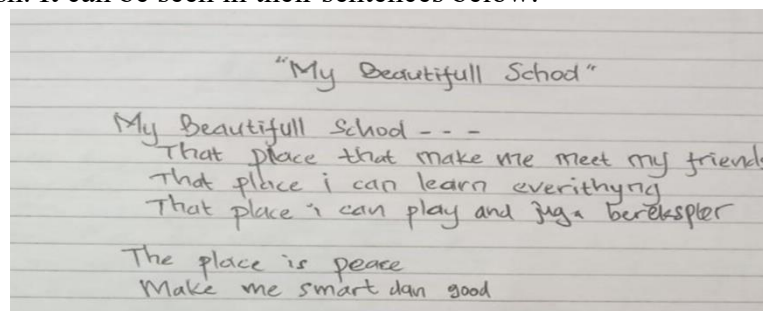 on. It can be seen in their sentences below:
"My Beautifull School"
My Beautifull School - - -
That place that make me meet my friends
That place i can learn everithyng
That place i can play and juga berekspler
The place is peace
Make me smart dan good